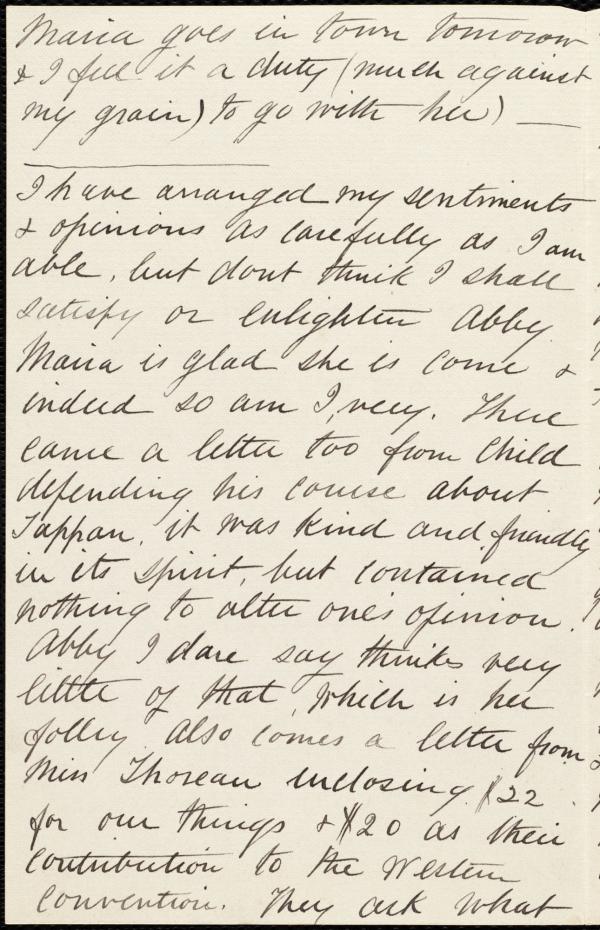 Maria goes in town tomorow
& I feel it a duty (much against
my grain) to go with her) —
I have arranged my sentiments
& opinions as carefully as I am
able, but dont think I shall
satisfy or enlighten Abby.
Maria is glad she is come &
indeed so am I, very. There
came a letter too from Child
defending his course about
Tappan, it was kind and friendly
in its spirit, but contained
nothing to alter one's opinion.
Abby I dare say thinks very
little of that, which is her
folley also comes a letter from
Miss Thoreau inclosing $22
for our things & $20 as their
contribution to the Western
Convention. They ask what